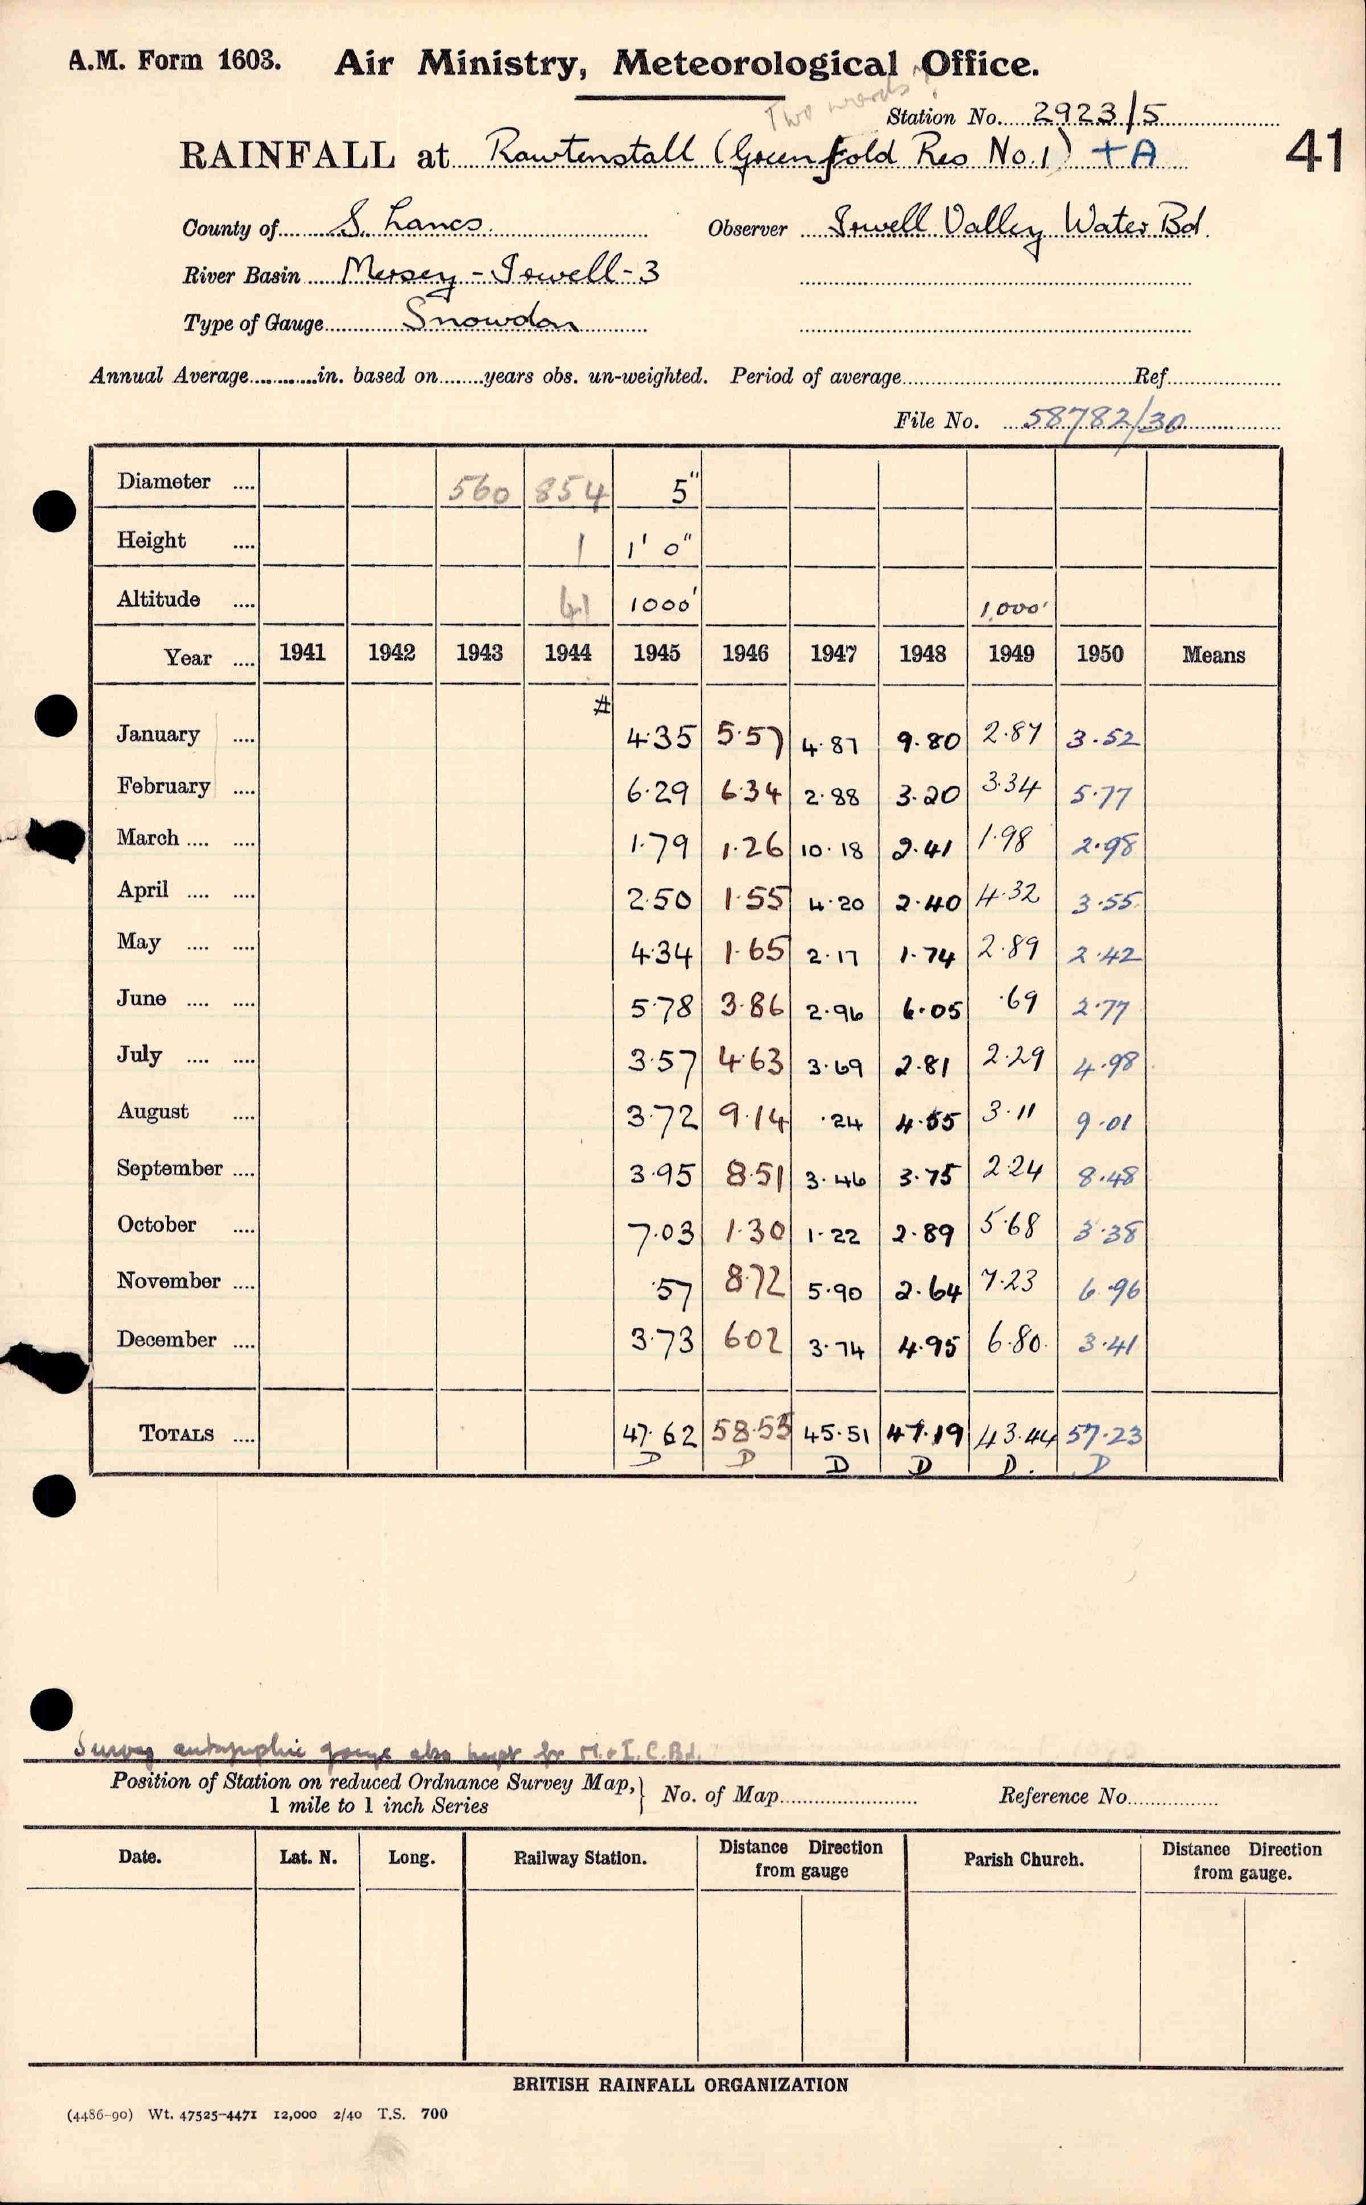 A.M. Form 1603. Air Ministry, Meteorological Office.
Two words?
Station No. 2923/5
RAINFALL at Rawtenstall (Greenfold Res No.1) +A 41
County of S. Lancs. Observer Irwell Valley Water Bd.
River Basin Mersey - Irwell - 3
Type of Gauge Snowdon
Annual Average............in. based on........years obs. un-weighted. Period of average Ref
File No. 58782/30
Diameter .... 560 854 5"
Height .... 1 1' 0"
Altitude .... 41 1000' 1,000'
Year .... 1941 1942 1943 1944 1945 1946 1947 1948 1949 1950 Means
#
January .... 4.35 5.57 4.87 9.80 2.87 3.52
February .... 6.29 6.34 2.88 3.20 3.34 5.77
March .... .... 1.79 1.26 10.18 2.41 1.98 2.98
April .... .... 2.50 1.55 4.20 2.40 4.32 3.55
May .... .... 4.34 1.65 2.17 1.74 2.89 2.42
June .... .... 5.78 3.86 2.96 6.05 .69 2.77
July .... .... 3.57 4.63 3.69 2.81 2.29 4.98
August .... 3.72 9.14 .24 4.55 3.11 9.01
September .... 3.95 8.51 3.46 3.75 2.24 8.48
October .... 7.03 1.30 1.22 2.89 5.68 3.38
November .... .57 8.72 5.90 2.64 7.23 6.96
December .... 3.73 6.02 3.74 4.95 6.80 3.41
TOTALS .... 47.62 58.55 45.51 47.19 43.44 57.23
D D D D D. D
Survey autographic gauge also kept for M. & I. C. Bd.
Position of Station on reduced Ordnance Survey Map, } No. of Map Reference No.
1 mile to 1 inch Series
Date. Lat. N. Long. Railway Station. Distance Direction from gauge Parish Church. Distance Direction from gauge.
BRITISH RAINFALL ORGANIZATION
(4486-90) Wt. 47525-4471 12,000 2/40 T.S. 700